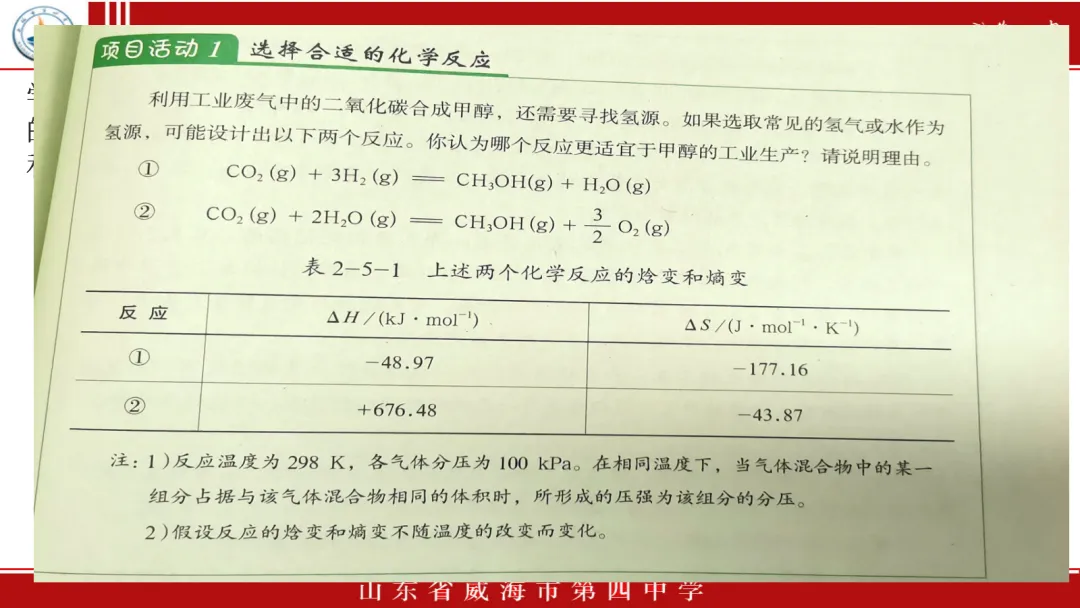 项目活动 1 选择合适的化学反应
利用工业废气中的二氧化碳合成甲醇，还需要寻找氢源。如果选取常见的氢气或水作为
氢源，可能设计出以下两个反应。你认为哪个反应更适宜于甲醇的工业生产？请说明理由。
① CO₂ (g) + 3H₂ (g) ══ CH₃OH(g) + H₂O (g)
② CO₂ (g) + 2H₂O (g) ══ CH₃OH (g) + 3/2 O₂ (g)
表 2-5-1 上述两个化学反应的焓变和熵变
反 应 ΔH/(kJ·mol⁻¹) ΔS/(J·mol⁻¹·K⁻¹)
① -48.97 -177.16
② +676.48 -43.87
注：1）反应温度为 298 K，各气体分压为 100 kPa。在相同温度下，当气体混合物中的某一
组分占据与该气体混合物相同的体积时，所形成的压强为该组分的分压。
2）假设反应的焓变和熵变不随温度的改变而变化。
山东省威海市第四中学